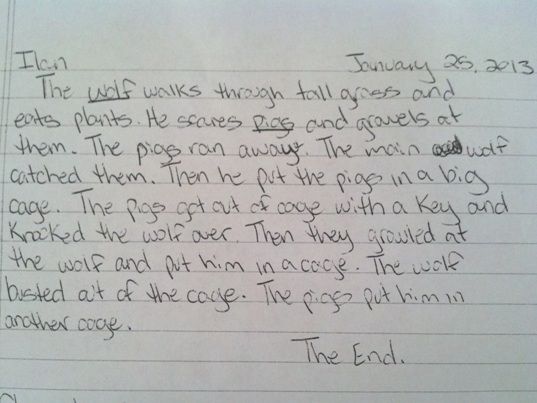 Ilan January 25, 2013
The wolf walks through tall grass and
eats plants. He scares pigs and grawels at
them. The pigs ran away. The main wolf
catched them. Then he put the pigs in a big
cage. The pigs got out of cage with a key and
knocked the wolf over. Then they growled at
the wolf and put him in a cage. The wolf
busted out of the cage. The pigs put him in
another cage.
The End.